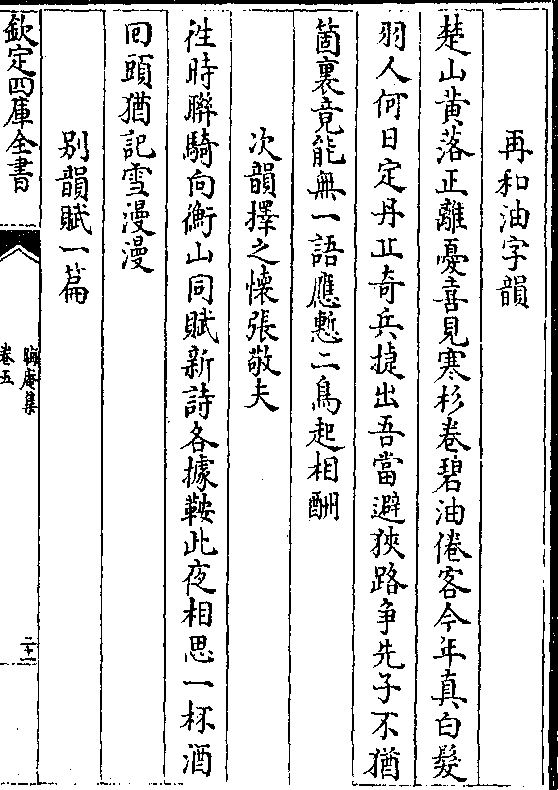 再和油字韻
楚山黄落正離憂喜見寒杉卷碧油倦客今年真白髪
羽人何日定丹丘奇兵㨗出吾當避狹路争先子不猶
箇裏竟能無一語應慙二鳥起相酬
次韻擇之懐張敬夫
徃時聨騎向衡山同賦新詩各據鞍此夜相思一杯酒
回頭猶記雪漫漫
别韻賦一篇
欽定四庫全書
晦庵集
卷五
二十一